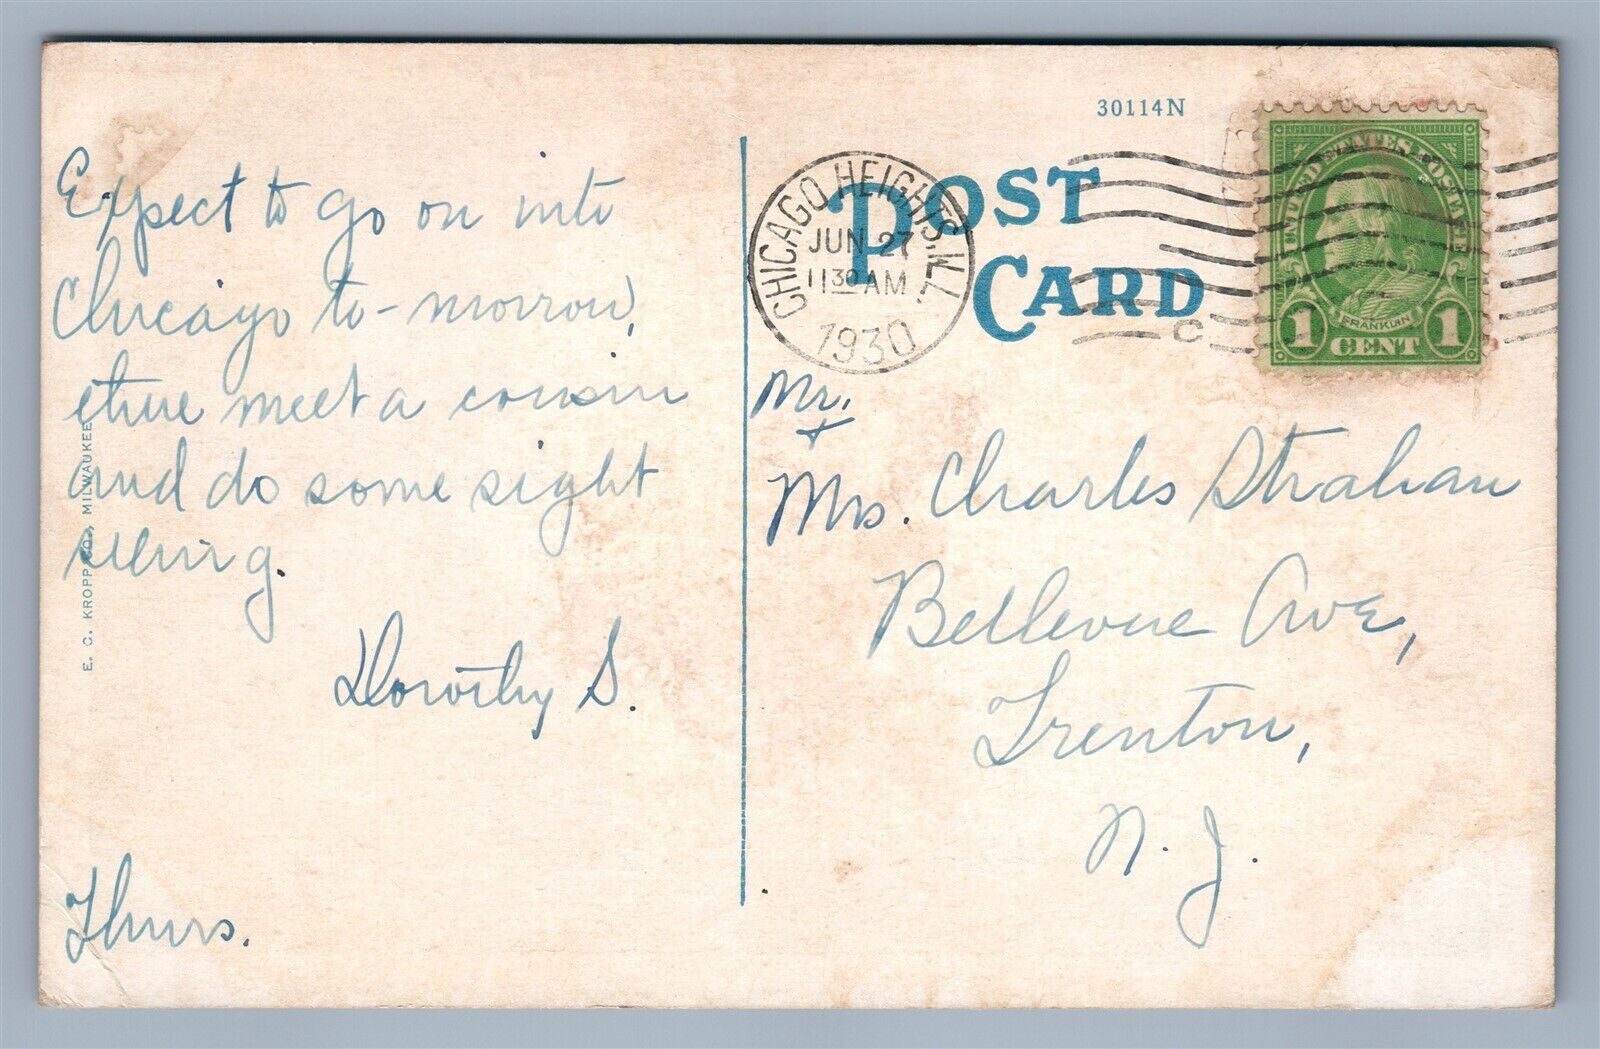 Expect to go on into
Chicago to-morrow,
there meet a cousin
and do some sight
seeing.
Dorothy S.
Thurs.
E. C. KROPP CO., MILWAUKEE
30114N
POST
CARD
CHICAGO HEIGHTS, ILL.
JUN 27
11 30 AM
1930
C
UNITED STATES POSTAGE
FRANKLIN
1 CENT 1
Mr.
+
Mrs. Charles Strahan
Bellevue Ave,
Trenton,
N. J.